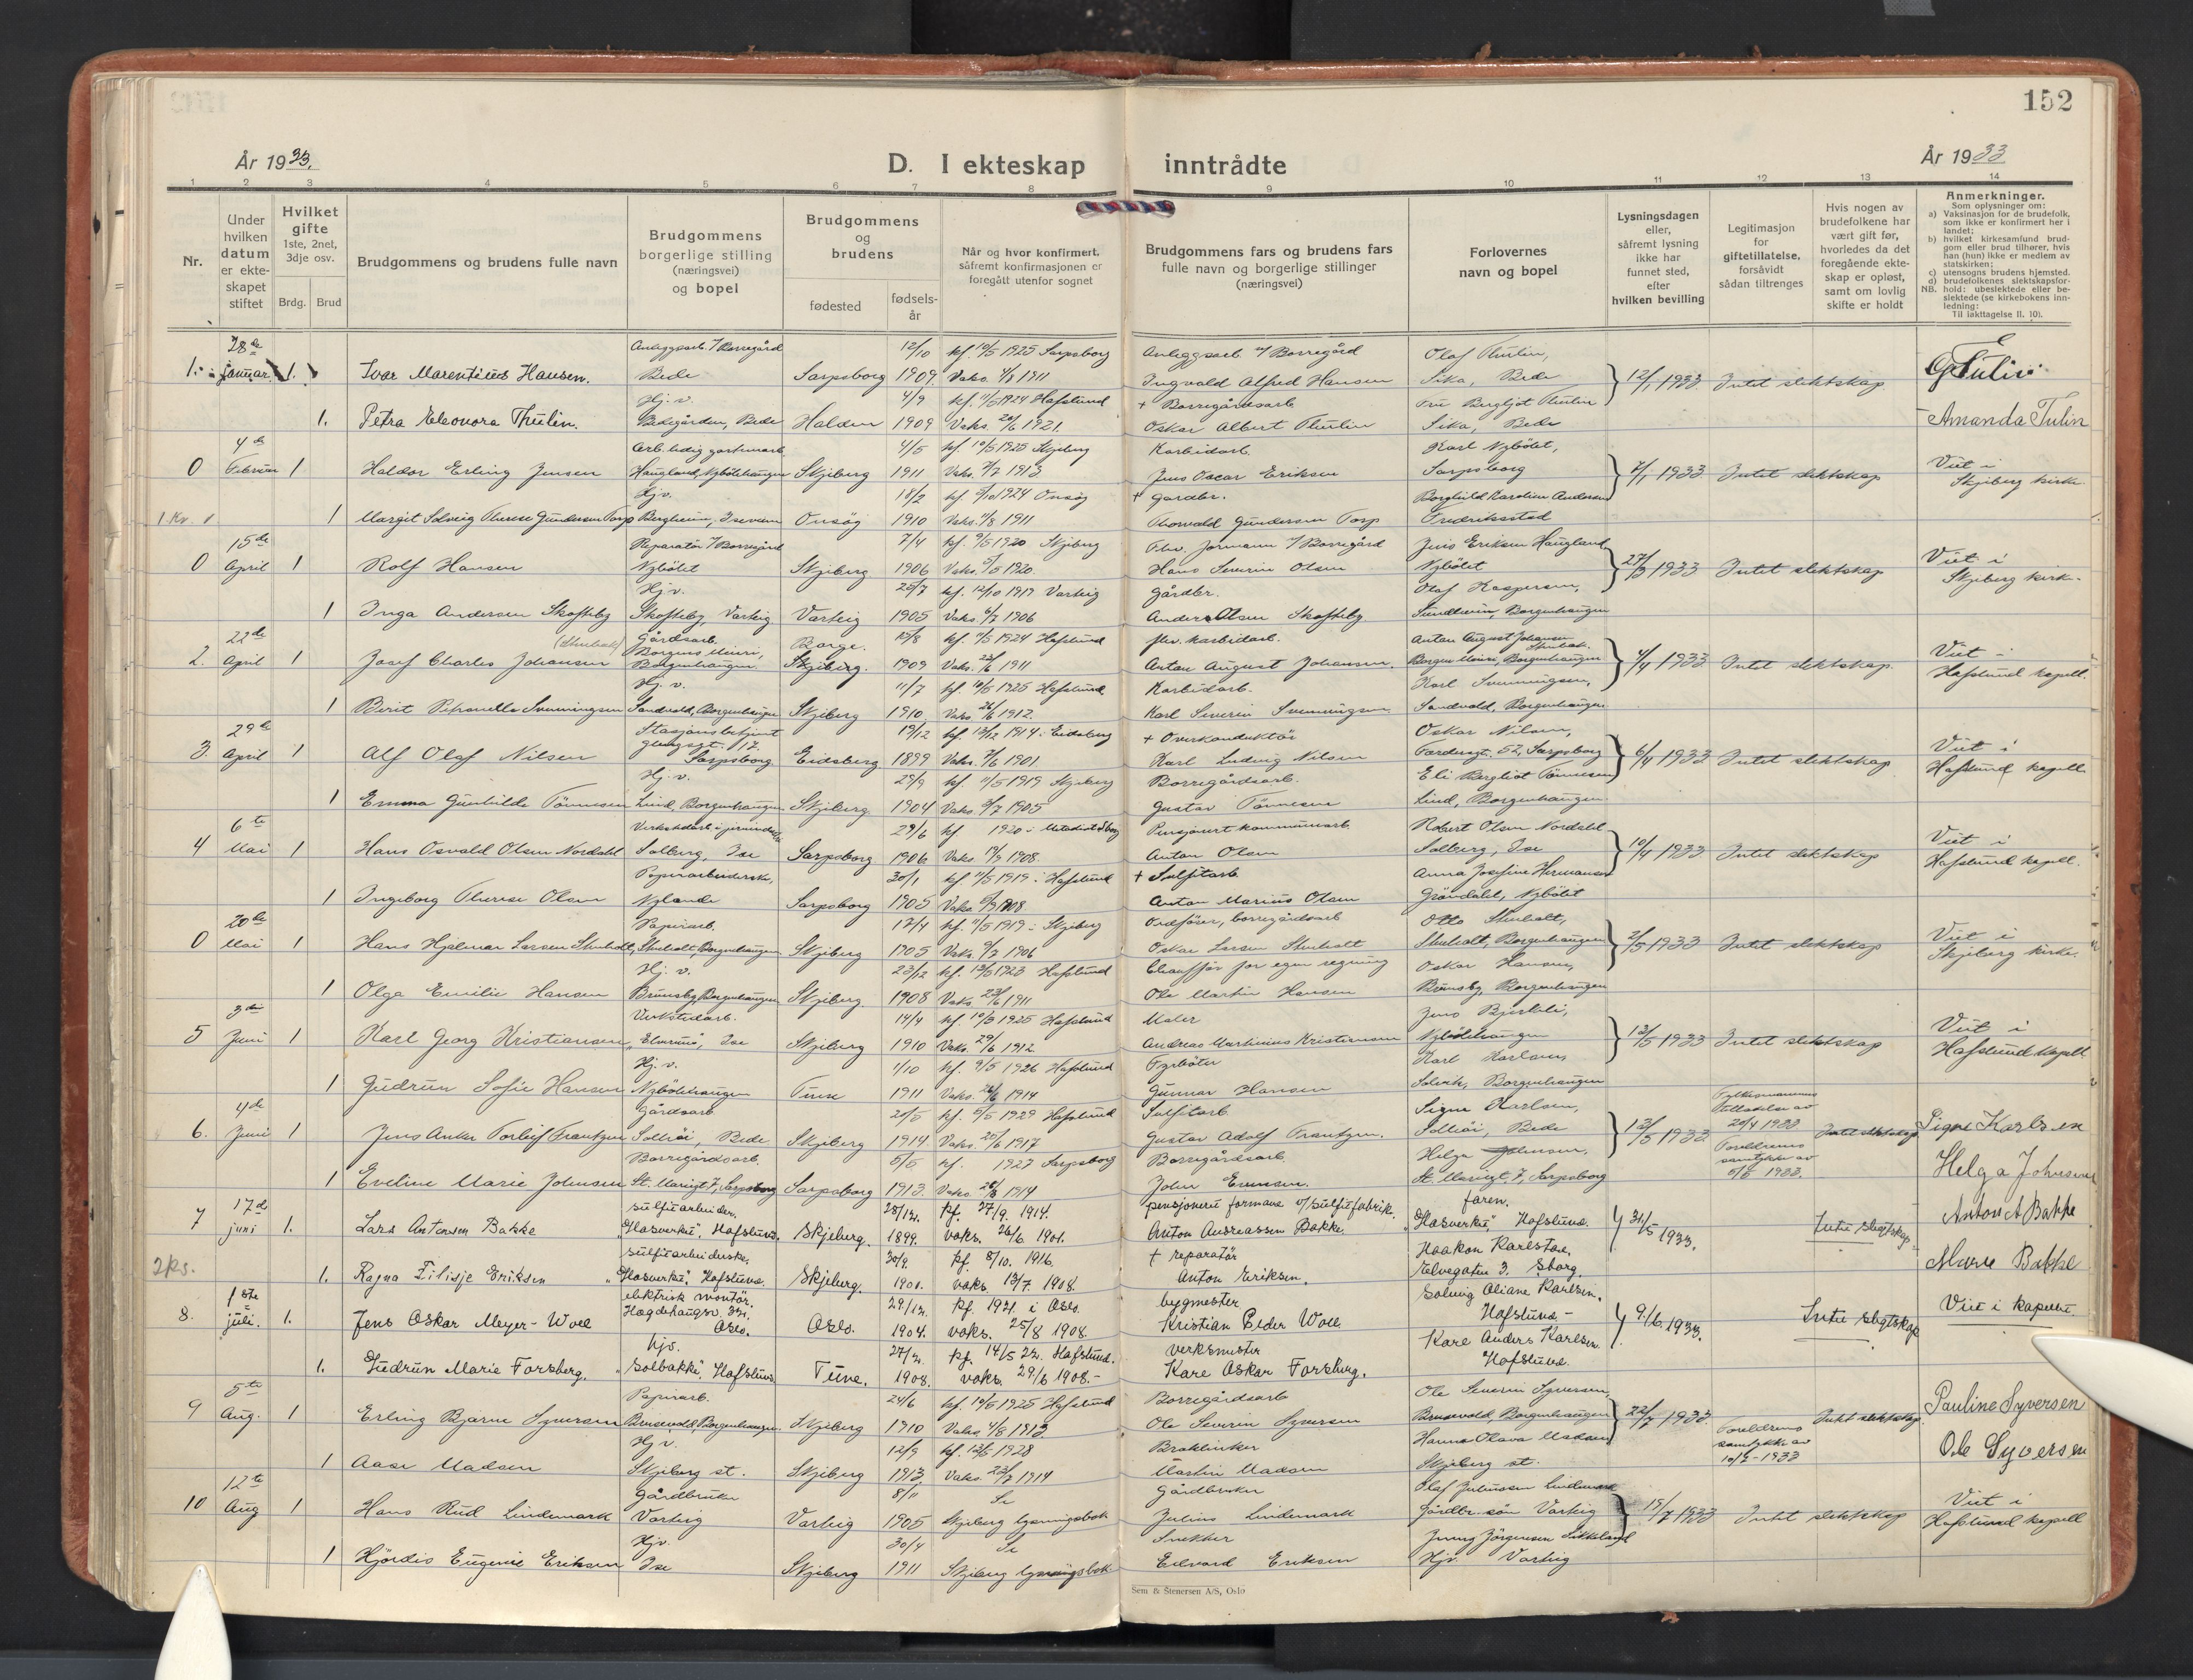 152
År 1933.
D. I ekteskap inntrådte
År 1933
1 2 3 4 5 6 7 8 9 10 11 12 13 14
Nr.
Under hvilken datum er ekteskapet stiftet
Hvilket gifte 1ste, 2net, 3dje osv.
Brdg. Brud
Brudgommens og brudens fulle navn
Brudgommens borgerlige stilling (næringsvei) og bopel
Brudgommens og brudens
fødested
fødsels-år
Når og hvor konfirmert, såfremt konfirmasjonen er foregått utenfor sognet
Brudgommens fars og brudens fars fulle navn og borgerlige stillinger (næringsvei)
Forlovernes navn og bopel
Lysningsdagen eller, såfremt lysning ikke har funnet sted, efter hvilken bevilling
Legitimasjon for giftetillatelse, forsåvidt sådan tiltrenges
Hvis nogen av brudefolkene har vært gift før, hvorledes da det foregående ekteskap er opløst, samt om lovlig skifte er holdt
Anmerkninger.
Som oplysninger om:
a) Vaksinasjon for de brudefolk, som ikke er konfirmert her i landet;
b) hvilket kirkesamfund brudgom eller brud tilhører, hvis han (hun) ikke er medlem av statskirken;
c) utensogns brudens hjemsted.
d) brudefolkenes slektskapsforhold: ubeslektede eller beslektede (se kirkebokens innledning:
NB.
Til iakttagelse II. 10).
28de Anleggsarb. v/Borregård 12/10 kf. 10/5 1925 Sarpsborg Anleggsarb. v/ Borregård Olaf Thulin,
1. januar 1. Ivar Marentius Hansen. Bede Sarpsborg 1909. Ingvald Alfred Hansen Sika, Bede 12/1 1933 Intet slektskap. G Tulin
Hj. v. 4/9 kf. 11/5 1924 Hafslund + Borregårdsarb. Fru Bergljot Thulin
1. Petra Eleonora Thulin. Bede Halden 1909 Oskar Albert Thulin Sika, Bede Amanda Tulin
4de 4/5 kf. 10/5 1925 Skjeberg Karbidarb. Karl Nybölet,
0 Februar 1 Haldor Erling Jensen Skjeberg 1911 Vaks. 7/7 1913 Jens Oscar Eriksen Sarpsborg 7/1 1933 Intet slektskap Viet i Skjeberg kirke
Hj. v. 18/2 1924 Onsöy + gårdbr. Borghild Karoline Andersen
1 Margit Solveig Therese Gundersen Torp Bergheim, Onsöy 1910 1911 Thorvald Gundersen Torp Fredriksstad
15de Reparatör v/Borregård 7/4 kf. 9/5 1920 Skjeberg Jens Eriksen Haugland
0 April 1 Rolf Hansen Nybölet Skjeberg 1906 Hans Severin Olsen Nybölet 27/3 1933 Intet slektskap Viet i Skjeberg kirke.
Hj. v. 25/7 kf. 12/10 1919 Varteig gårdbr. Olaf Kaspersen,
1 Inga Andersen Skofteby Skofteby, Varteig Varteig 1905 Vaks 6/7 1906 Anders Olsen Skofteby Borgenhaugen
22de Gårdsarb. Borge. kf. 11/5 1924 Hafslund Karbidarb. Anton August Johansen
2. April 1 Josef Charles Johansen Borgenhaugen Skjeberg. 1909 1911 Anton August Johansen. Borgenhaugen 4/4 1933 Intet slektskap. Viet i Hafslund kapell.
Hj. v. 11/7 kf. 10/5 1925 Hafslund Karbidarb. Karl Svenningsen,
1 Birit Petronella Svenningsen Sandvold, Borgenhaugen Skjeberg 1910 Vaks 26/6 1912. Karl Severin Svenningsen Sandvold, Borgenhaugen
29de Stasjonsbetjent 19/12 kf. 13/12 1914 i Eidsberg + Overkonduktör Oskar Nilsen,
3. April 1 Alf Olaf Nilsen Sarpsborg Eidsberg 1899 1901. Karl Ludvig Nilsen 52, Sarpsborg 6/4 1933 Intet slektskap Viet i Hafslund kapell
Hj. v. 29/9 kf. 11/5 1919 Skjeberg Borregårdsarb. Eli Bergliot Tönnesen
1 Emma Gunhilde Tönnesen Lind, Borgenhaugen Skjeberg 1904 1905 Gustav Tönnesen Lind, Borgenhaugen
6te 29/6 kf 1920 i Metodist Sborg Pensjonert kommunearb. Robert Olsen Nordahl
4 Mai 1 Hans Osvald Olsen Nordahl Solberg, Ise Sarpsborg 1906 1908 Anton Olsen Solberg, Ise 10/4 1933 Intet slektskap Viet i Hafslund kapell.
Papirarbeiderske, 30/1 kf. 11/5 1919 i Hafslund + Sulfitarb. Anna Josefine Hermansen
1 Ingeborg Therese Olsen Nylande Sarpsborg 1905 1908 Anton Marius Olsen Gröndahl, Nybölet
20de Papirarb. 17/4 kf. 11/5 1919 i Skjeberg borregårdsarb Otto Stuholt,
0 Mai 1 Hans Hjalmar Larsen Stuholt, Stuholt, Borgenhaugen Skjeberg 1905 1906 Oskar Larsen Stuholt Stuholt, Borgenhaugen 2/5 1933 Intet slektskap Viet i Skjeberg kirke.
Hj. v. 23/12 1923 Hafslund Chaufför for egen regning Oskar Hansen,
1 Olga Emilie Hansen Brunsby, Borgenhaugen Skjeberg 1908 Vaks 23/6 1911 Ole Martin Hansen Brunsby, Borgenhaugen
3die Verkstedarb. 14/4 1925 Hafslund Maler
5 Juni 1 Karl Georg Kristiansen Ise Skjeberg 1910 Vaks. 29/6 1912 Andreas Martinius Kristiansen Nybölethaugen 12/5 1933 Intet slektskap Viet i Hafslund kapell
Hj. v. 1/10 kf. 9/5 1926 Hafslund Fyrböter Karl Karlsen,
1 Gudrun Sofie Hansen Nybölethaugen Tune 1911 Vaks. 26/6 1914 Gunnar Hansen Solvik, Borgenhaugen
4de Gårdsarb. 20/5 kf. 5/5 1929 Hafslund Sulfitarb. Signe Karlsen, Fylkesmannens tillatelse av
6. Juni 1 Jens Anker Torleif Frantzen Bede Skjeberg 1914 Vaks. 25/6 1917 Gustav Adolf Frantzen. Bede 12/5 1933 20/4 1933. Intet slektskap Signe Karlsen
Borregårdsarb. 5/5 kf. 1927 Sarpsborg Borregårdsarb. Helga Johnsen, Foreldrenes samtykke av
1 Eveline Marie Johnsen St. Mariegt. 7, Sarpsborg Sarpsborg 1913 1914 John St. Mariegt. 7, Sarpsborg 5/5 1933. Helga Johnsen
17de sulfitarbeider. 28/12. kf. 27/9. 1914. pensjonert formann v/sulfitfabrik. faren.
7 juni 1. Lars Antonsen Bakke "Glasverket", Hafslund. Skjeberg. 1899. vaks. 26/6 1901. Anton Andreassen Bakke. "Glasverket", Hafslund. 31/5 1933. Intet slegtskap. Anton A Bakke
sulfitarbeiderske. 30/9. kf. 8/10. 1916. + reparatör Haakon Karlstad,
2 Ks. 1. Ragna Filisje Eriksen "Glasverket", Hafslund. Skjeberg. 1901. vaks. 13/7. 1908. Anton Eriksen. Elvegaten 3. Sborg. Marie Bakke
1ste elektrisk montör. 29/12. kf. 1921. i Oslo. bygmester Solveig Oliane Karlsen.
8. juli. 1. Jens Oskar Meyer-Woll Oslo. Oslo. 1904. vaks. 25/8 1908. Kristian Peder Woll. Hafslund. 9/6. 1933. Intet slegtskap Viet i kapellet.
hjv. 27/2. kf. 14/5 22. Hafslund. verksmester Kare Anders Karlsen.
1. Gudrun Marie Forsberg. "Solbakke", Hafslund Tune. 1908. vaks. 29/6 1908.- Kare Oskar Forsberg. Hafslund.
5te Papirarb. 24/6 kf. 10/5 1925 Hafslund Borregårdsarb Ole Severin Syversen,
9 Aug. 1 Erling Bjarne Syversen Brusevold, Borgenhaugen. Skjeberg 1910 Vaks 4/8 1913 Ole Severin Syversen Brusevold, Borgenhaugen 22/7 1933 Foreldrenes Intet slektskap. Pauline Syversen
Hj v. 12/9 1928 Hanna Olava Madsen samtykke av
1 Aase Madsen Skjeberg st. Skjeberg 1913 Vaks. 23/7 1914 Martin Madsen Skjeberg st. 10/7-1933 Ole Syversen
12te Gårdbruker 8/11 Se Gårdbruker Olaf Juliussen Lindemark
10 Aug 1 Hans Rud Lindemark Varteig Varteig 1905 Skjeberg lysningsbok Julius Lindemark Gårdbr. sön Varteig 19/7 1933 Intet slektskap Viet i Hafslund kapell
Hjv. 30/4 Se Snekker Jenny Jörgensen Sikkeland
1 Hjördis Eugenie Eriksen Ise Skjeberg 1911 Skjeberg lysningsbok Edvard Eriksen Hjv. Varteig
Sem & Stenersen A/S, Oslo